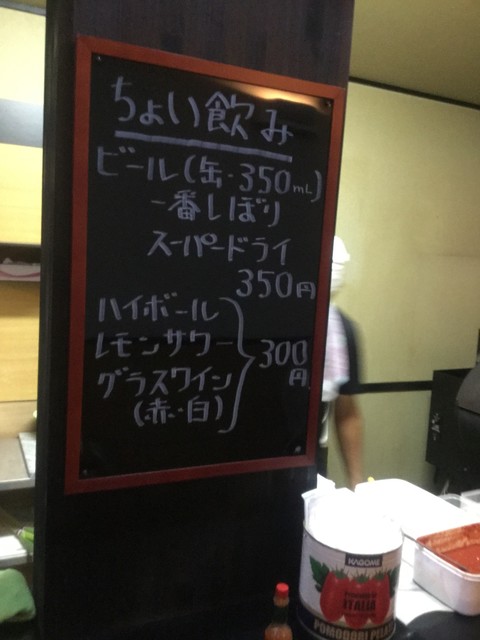 ちょい飲み
ビール(缶・350mL)
一番しぼり
スーパードライ
350円
ハイボール
レモンサワー
グラスワイン
(赤・白)
300
円
KAGOME
ITALIA